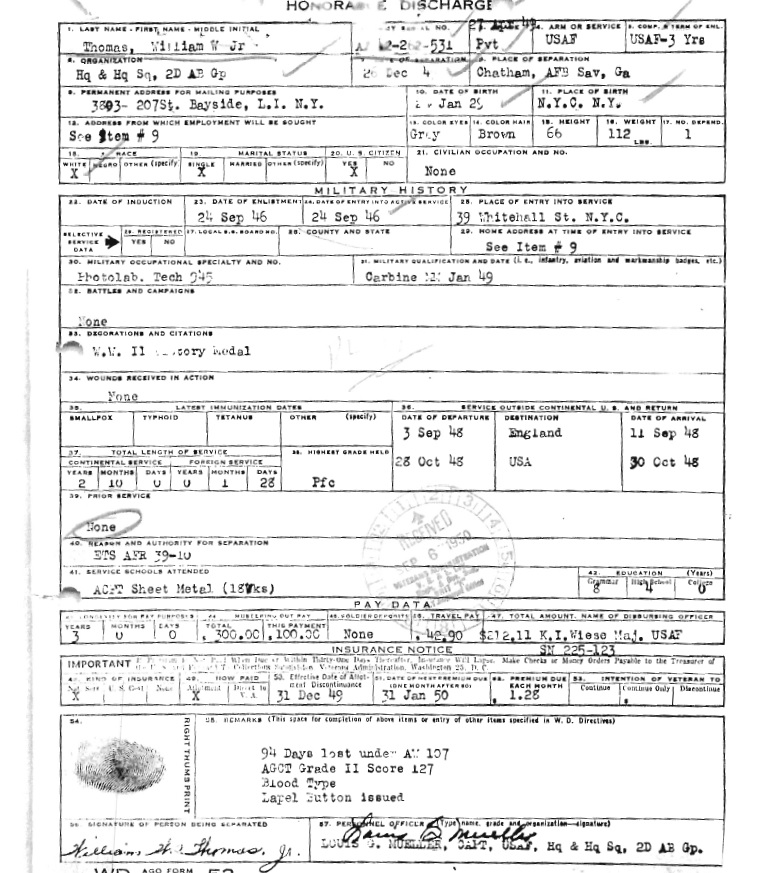 HONORABLE DISCHARGE
27 APR 49
1. LAST NAME - FIRST NAME - MIDDLE INITIAL
4. ARM OR SERVICE
5. COMP. & TERM OF ENL.
Thomas, William W Jr
531
Pvt
USAF
USAF-3 Yrs
6. ORGANIZATION
9. PLACE OF SEPARATION
Hq & Hq Sq, 2D AB Gp
Dec 4
Chatham, AFB Sav, Ga
9. PERMANENT ADDRESS FOR MAILING PURPOSES
10. DATE OF BIRTH
11. PLACE OF BIRTH
3803- 207St. Bayside, L.I. N.Y.
Jan 29
N.Y.C. N.Y.
12. ADDRESS FROM WHICH EMPLOYMENT WILL BE SOUGHT
13. COLOR EYES
14. COLOR HAIR
15. HEIGHT
16. WEIGHT
17. NO. DEPEND.
See Item # 9
Gray
Brown
66
112 LBS.
1
18. RACE
19. MARITAL STATUS
20. U. S. CITIZEN
21. CIVILIAN OCCUPATION AND NO.
WHITE NEGRO OTHER (specify)
SINGLE MARRIED OTHER (specify)
YES NO
X
X
X
None
MILITARY HISTORY
22. DATE OF INDUCTION
23. DATE OF ENLISTMENT
24. DATE OF ENTRY INTO ACTIVE SERVICE
25. PLACE OF ENTRY INTO SERVICE
24 Sep 46
24 Sep 46
39 Whitehall St. N.Y.C.
SELECTIVE SERVICE DATA
26. REGISTERED
YES NO
27. LOCAL S.S. BOARD NO.
28. COUNTY AND STATE
29. HOME ADDRESS AT TIME OF ENTRY INTO SERVICE
See Item # 9
30. MILITARY OCCUPATIONAL SPECIALTY AND NO.
31. MILITARY QUALIFICATION AND DATE (i. e., infantry, aviation and marksmanship badges, etc.)
Photolab. Tech 945
Carbine Jan 49
32. BATTLES AND CAMPAIGNS
None
33. DECORATIONS AND CITATIONS
W.W. II Victory Medal
34. WOUNDS RECEIVED IN ACTION
None
35. LATEST IMMUNIZATION DATES
36. SERVICE OUTSIDE CONTINENTAL U. S. AND RETURN
SMALLPOX
TYPHOID
TETANUS
OTHER (specify)
DATE OF DEPARTURE
DESTINATION
DATE OF ARRIVAL
3 Sep 48
England
11 Sep 48
37. TOTAL LENGTH OF SERVICE
38. HIGHEST GRADE HELD
CONTINENTAL SERVICE
FOREIGN SERVICE
28 Oct 48
USA
30 Oct 48
YEARS MONTHS DAYS YEARS MONTHS DAYS
2 10 0 0 1 28
Pfc
39. PRIOR SERVICE
None
RECEIVED
SEP 6 1950
40. REASON AND AUTHORITY FOR SEPARATION
ETS AFR 39-10
41. SERVICE SCHOOLS ATTENDED
42. EDUCATION (Years)
Grammar High School College
ACFT Sheet Metal (18Wks)
8 4 0
PAY DATA
43. LONGEVITY FOR PAY PURPOSES
44. MUSTERING OUT PAY
45. SOLDIER DEPOSITS
46. TRAVEL PAY
47. TOTAL AMOUNT, NAME OF DISBURSING OFFICER
YEARS MONTHS DAYS
TOTAL
THIS PAYMENT
3 0 0
300.00
100.00
None
42.90
$212.11 K.I.Wiese Maj. USAF
INSURANCE NOTICE
SN 225-123
IMPORTANT
48. KIND OF INSURANCE
49. HOW PAID
50. Effective Date of Allotment Discontinuance
51. DATE OF NEXT PREMIUM DUE (ONE MONTH AFTER 50)
52. PREMIUM DUE EACH MONTH
53. INTENTION OF VETERAN TO
Nat. Serv. U. S. Govt. None
Allotment Direct to V. A.
Continue
Continue Only
Discontinue
X
X
31 Dec 49
31 Jan 50
1.28
54.
RIGHT THUMB PRINT
55. REMARKS (This space for completion of above items or entry of other items specified in W. D. Directives)
94 Days lost under AW 107
AGCT Grade II Score 127
Blood Type
Lapel Button issued
56. SIGNATURE OF PERSON BEING SEPARATED
57. PERSONNEL OFFICER (Type name, grade and organization - signature)
William W. Thomas, Jr.
Louis G Mueller
LOUIS G. MUELLER, CAPT, USAF, Hq & Hq Sq, 2D AB Gp.
WD AGO FORM 53